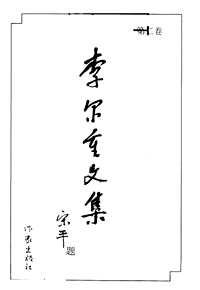 第二卷
李尔重文集
宋平题
作家出版社